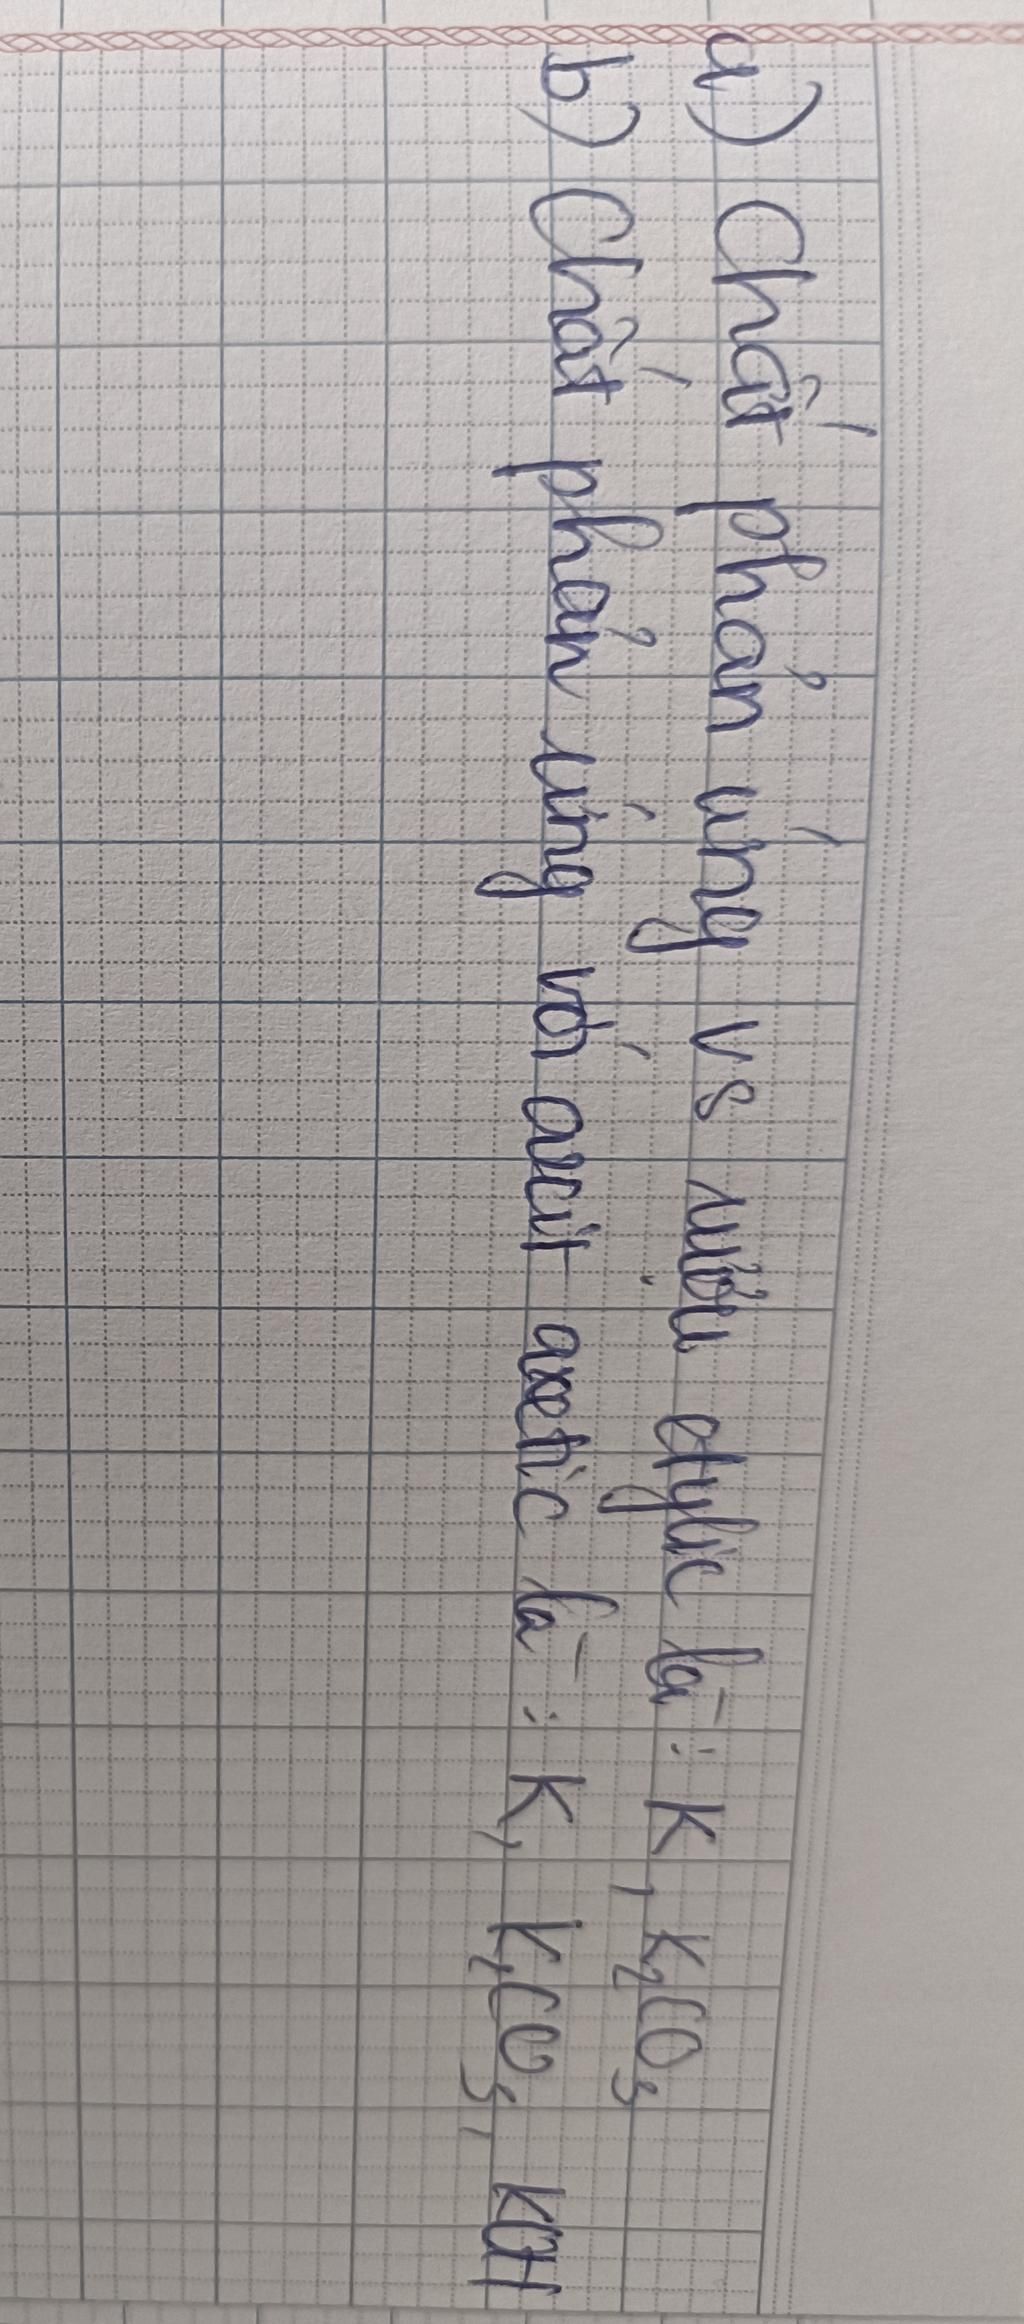 a) Chất phản ứng vs rượu etylic là : K, K₂CO₃
b) Chất phản ứng với axit axetic là : K, K₂CO₃, KOH